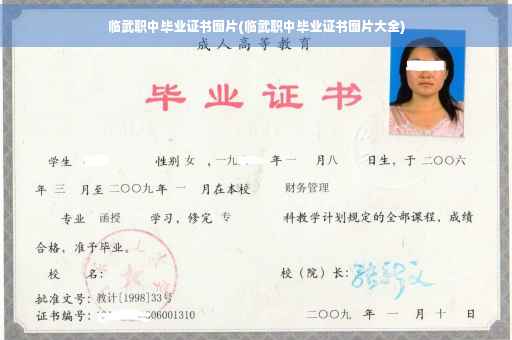 临武职中毕业证书图片(临武职中毕业证书图片大全)
成人高等教育
毕业证书
学生 性别 女 ，一九 年 一 月 八 日生，于 二〇〇六
年 三 月至 二〇〇九 年 一 月在本校 财务管理
专业 函授 学习，修完 专 科教学计划规定的全部课程，成绩
合格，准予毕业。
校 名： 校（院）长：
批准文号：教计[1998]33号
证书编号： 06001310 二〇〇九 年 一 月 十 日